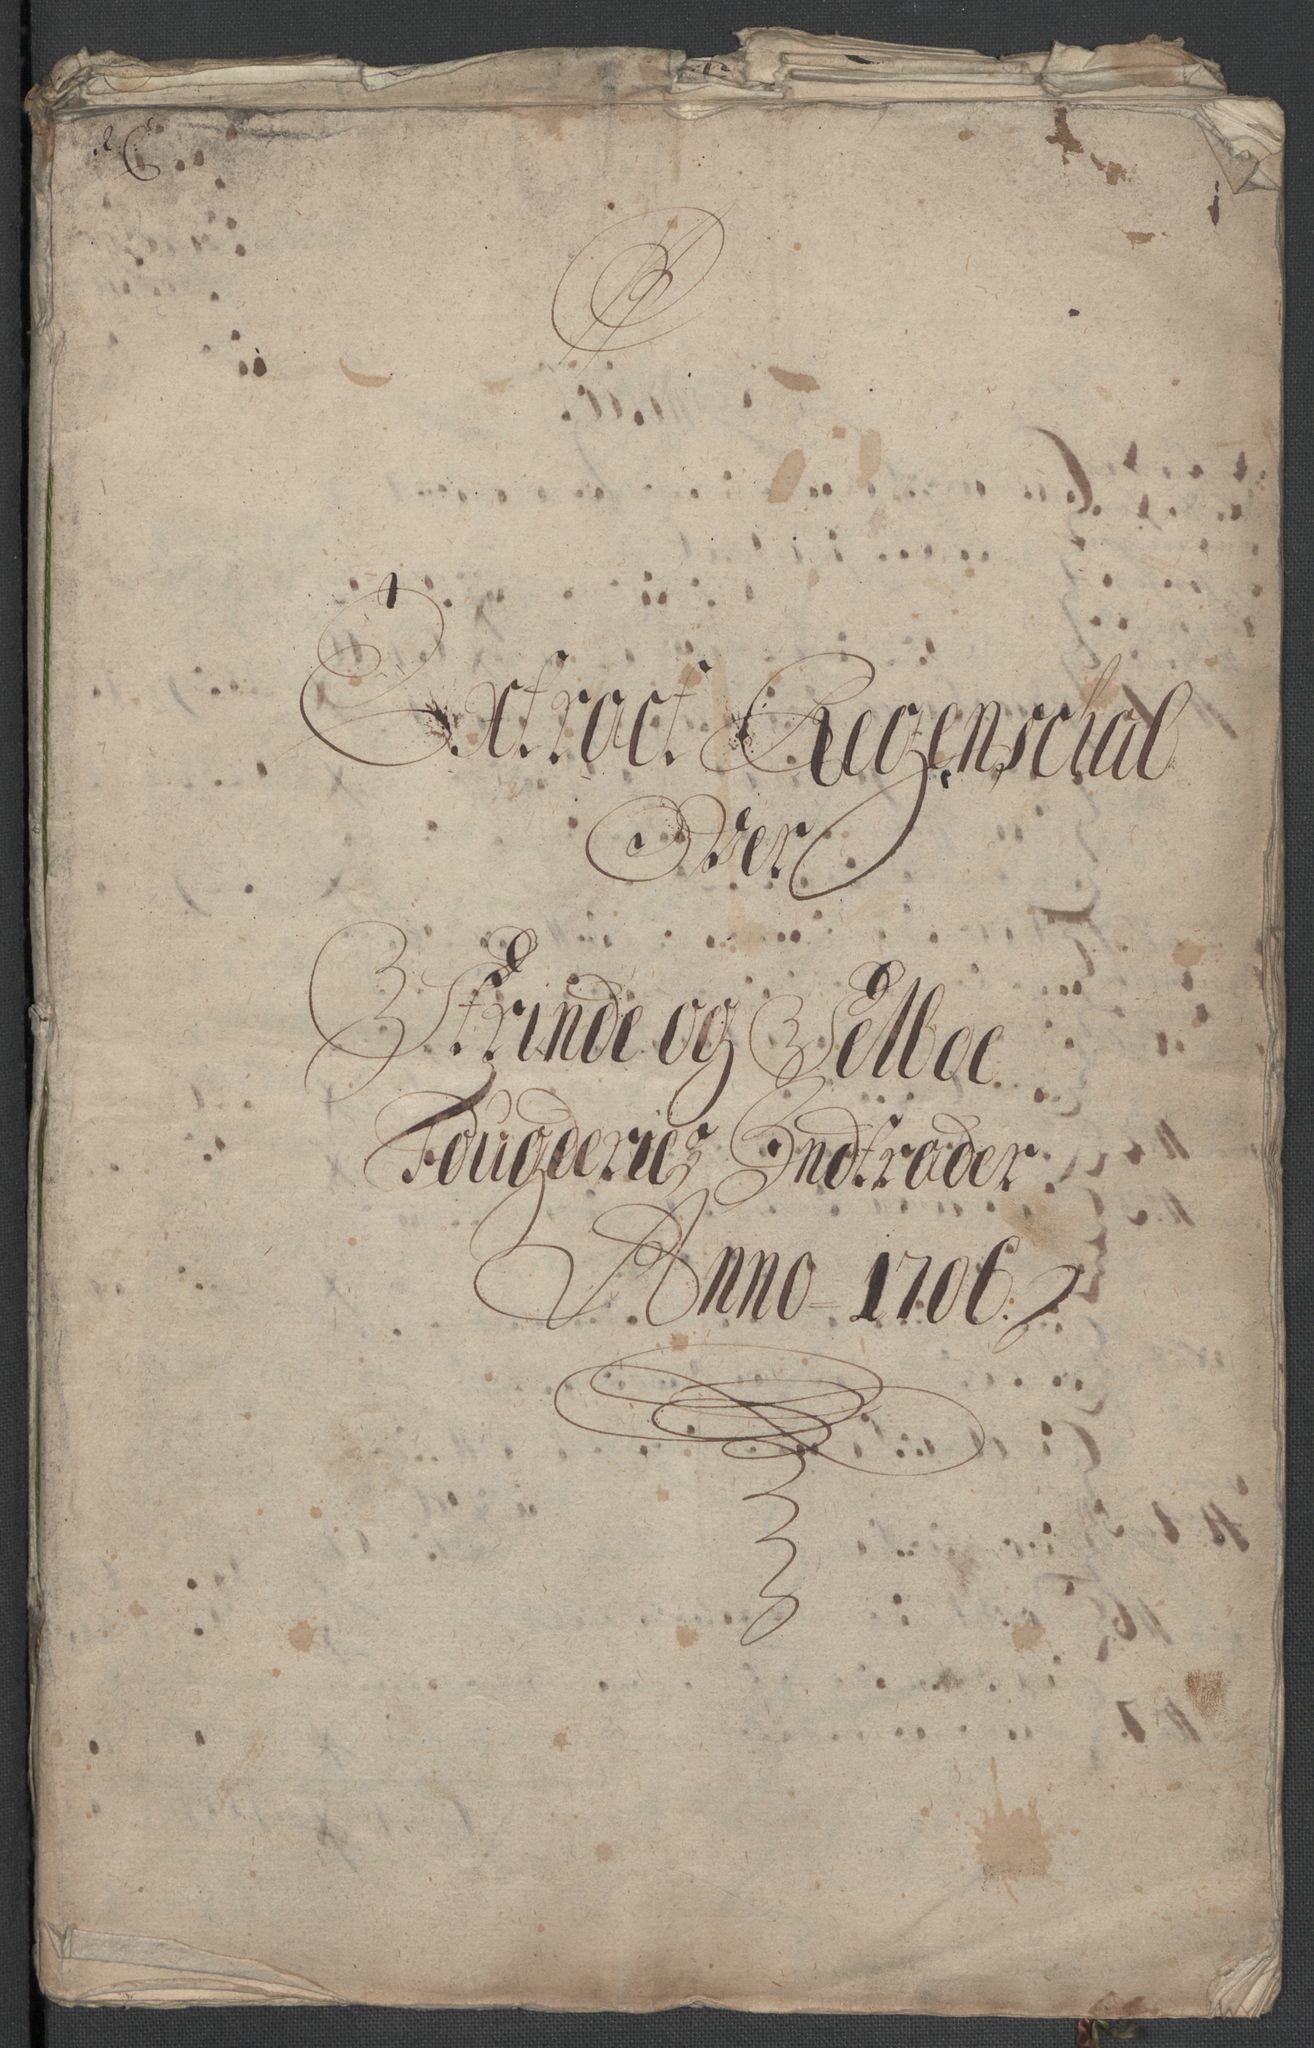 Extract Regenschab
Over
Strinde og Selboe
Fougderies Indtrader
Anno 1706.